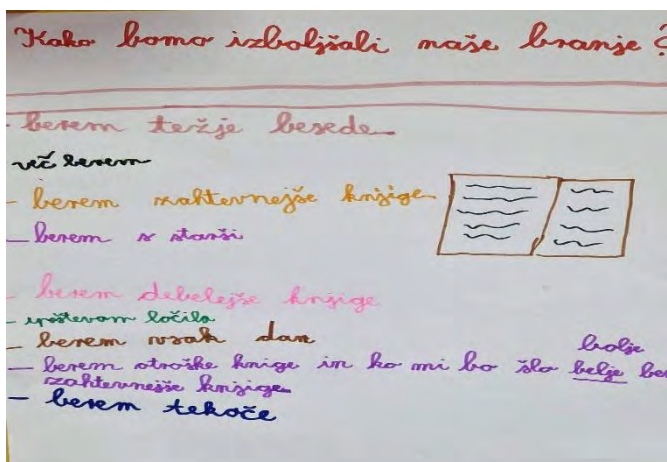 Kako bomo izboljšali naše branje?
- berem težje besede
več berem
- berem zahtevnejše knjige
- berem s starši
- berem debelejše knjige
- upoštevam ločila
- berem vsak dan
bolje
- berem otroške knige in ko mi bo šlo belje ber
zahtevnejše knjige
- berem tekoče